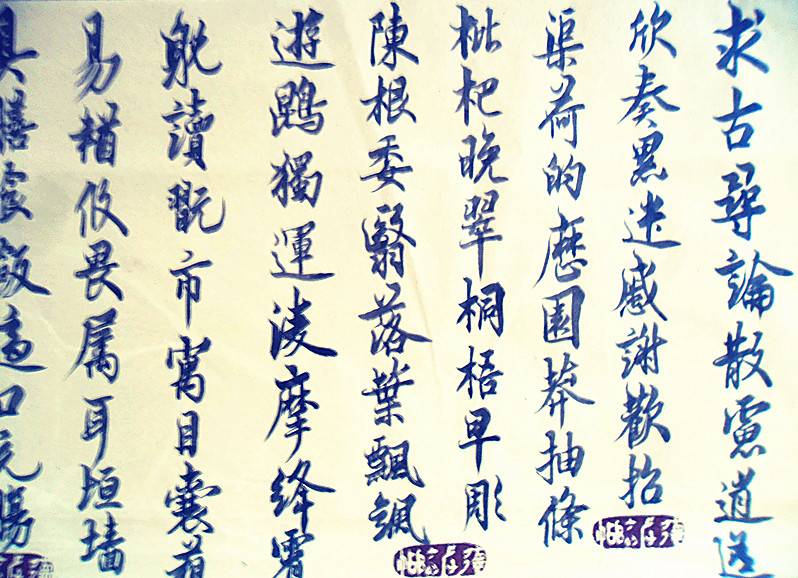 求古尋論散慮逍遙
欣奏累遣慼謝歡招
渠荷的歷園莽抽條
枇杷晚翠桐梧早彫
陳根委翳落葉飄颻
遊鵾獨運凌摩絳霄
耽讀翫市寓目囊箱
易輶攸畏属耳垣墙
具膳飡飯適口充腸